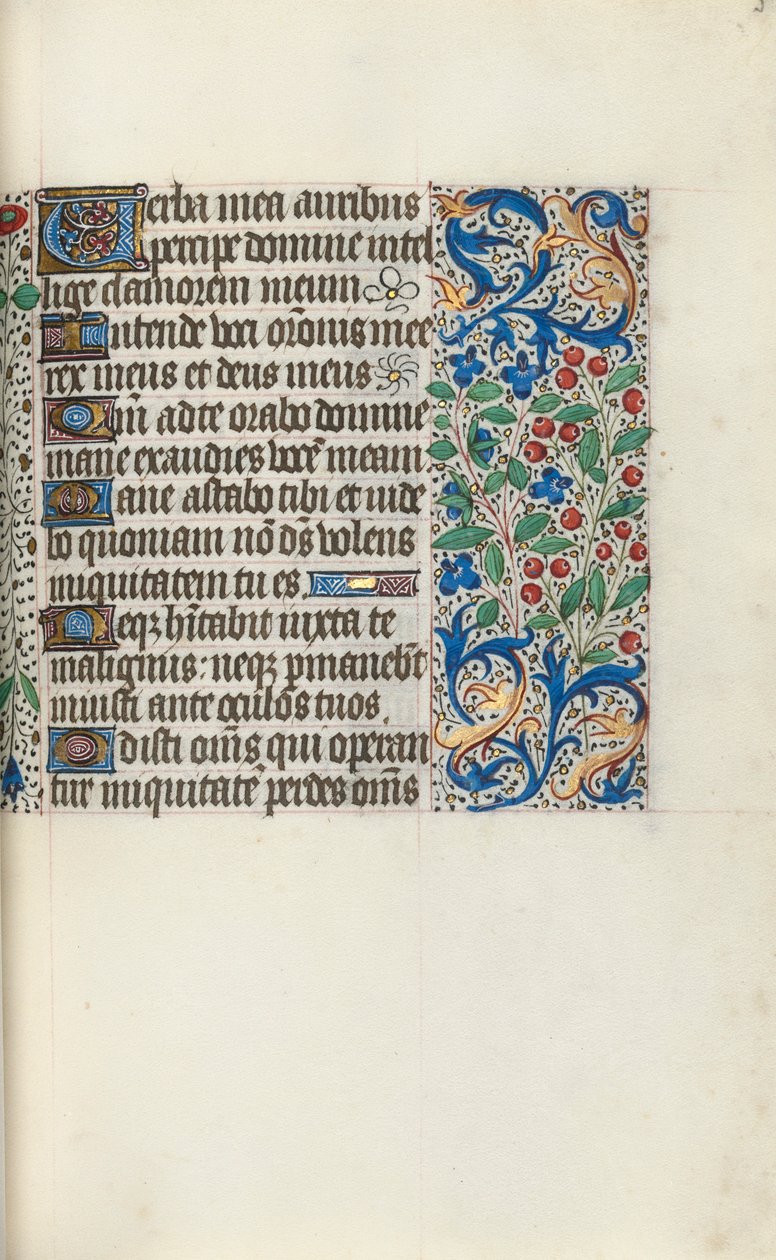 Verba mea auribus
percipe domine intel
lige clamorem meum
Intende voci or̄onis mee
rex meus et deus meus
Qm̄ ad te orabo domine
mane exaudies vocē meam
Mane astabo tibi et vide
bo quoniam nō ds̄ volens
iniquitatem tu es.
Neqȝ hītabit iuxta te
malignus: neqȝ ꝑmanebūt
iniusti ante oculos tuos.
Odisti om̄s qui operan
tur iniquitatē perdes om̄s